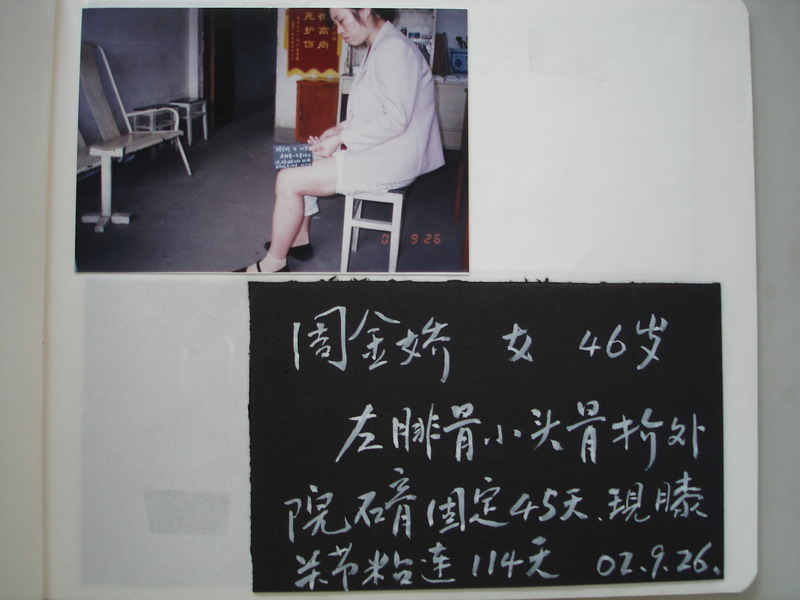 02 9 26
周金娇 女 46岁
左腓骨小头骨折外
院石膏固定45天、现膝
关节粘连114天 02.9.26.